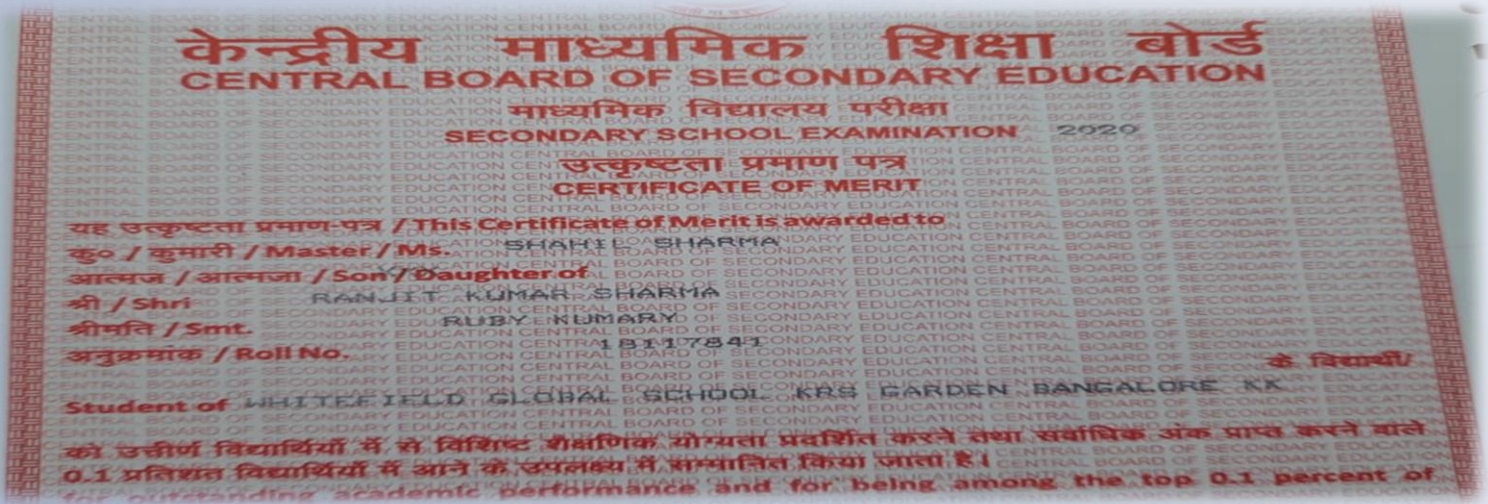 केन्द्रीय माध्यमिक शिक्षा बोर्ड
CENTRAL BOARD OF SECONDARY EDUCATION
माध्यमिक विद्यालय परीक्षा
SECONDARY SCHOOL EXAMINATION 2020
उत्कृष्टता प्रमाण पत्र
CERTIFICATE OF MERIT
यह उत्कृष्टता प्रमाण-पत्र / This Certificate of Merit is awarded to
कु० / कुमारी / Master / Ms. SHAHIL SHARMA
आत्मज / आत्मजा / Son / Daughter of
श्री / Shri RANJIT KUMAR SHARMA
श्रीमति / Smt. RUBY KUMARY
अनुक्रमांक / Roll No. 18117841
के विद्यार्थी/
Student of WHITEFIELD GLOBAL SCHOOL KRS GARDEN BANGALORE KK
को उत्तीर्ण विद्यार्थियों में से विशिष्ट शैक्षणिक योग्यता प्रदर्शित करने तथा सर्वाधिक अंक प्राप्त करने वाले
0.1 प्रतिशत विद्यार्थियों में आने के उपलक्ष्य में सम्मानित किया जाता है।
for outstanding academic performance and for being among the top 0.1 percent of